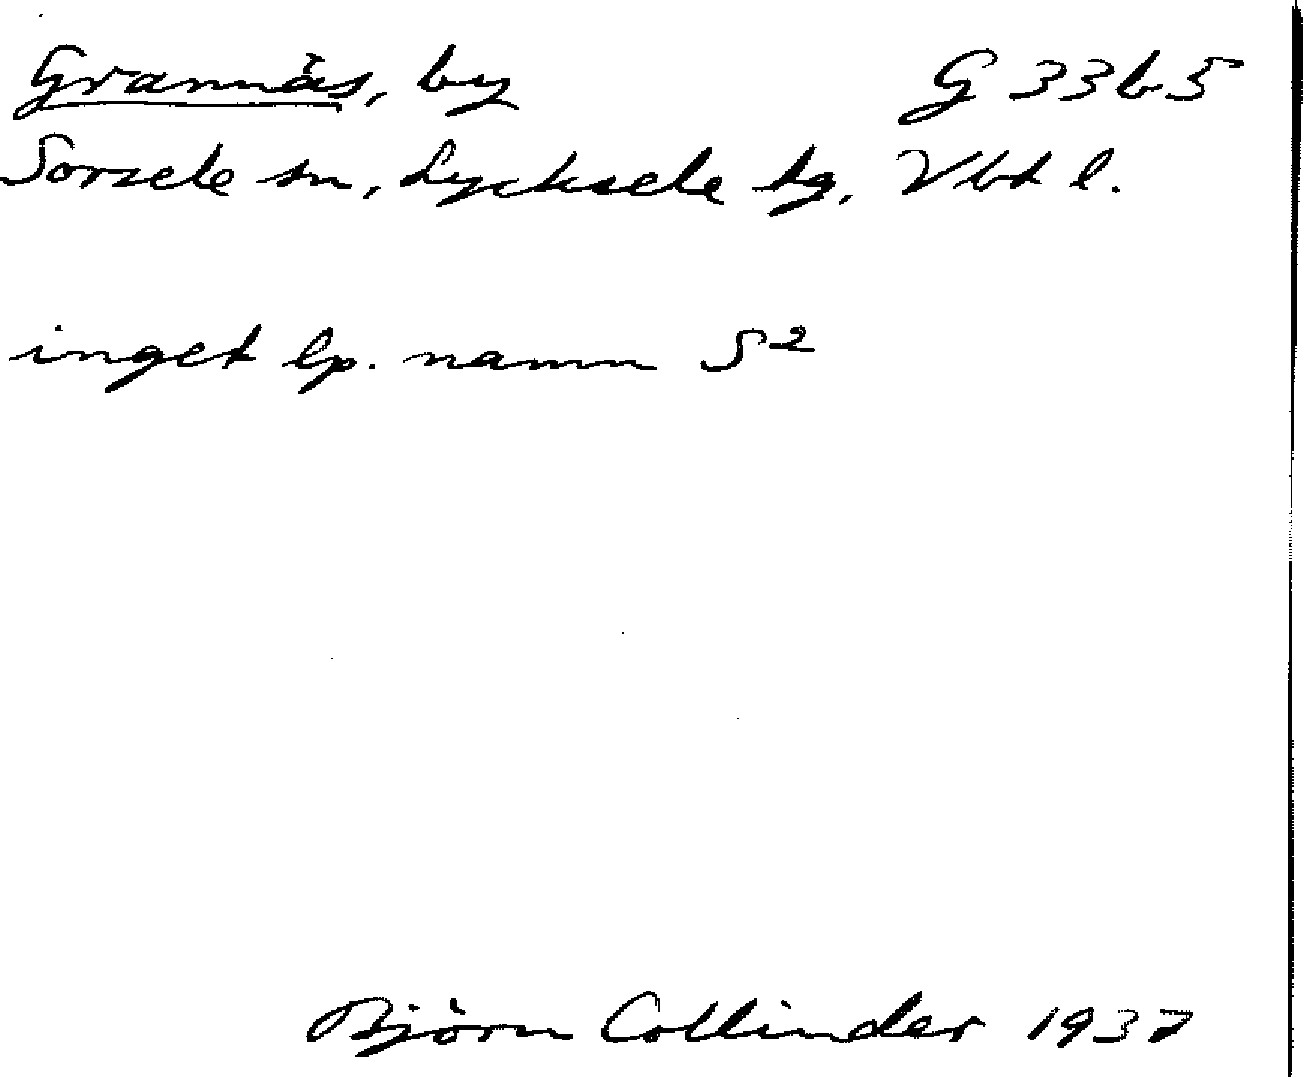 Grannäs, by G 33 b 5
Sorsele sn, Lycksele tg, Vbt l.
inget lp. namn S²
Björn Collinder 1937